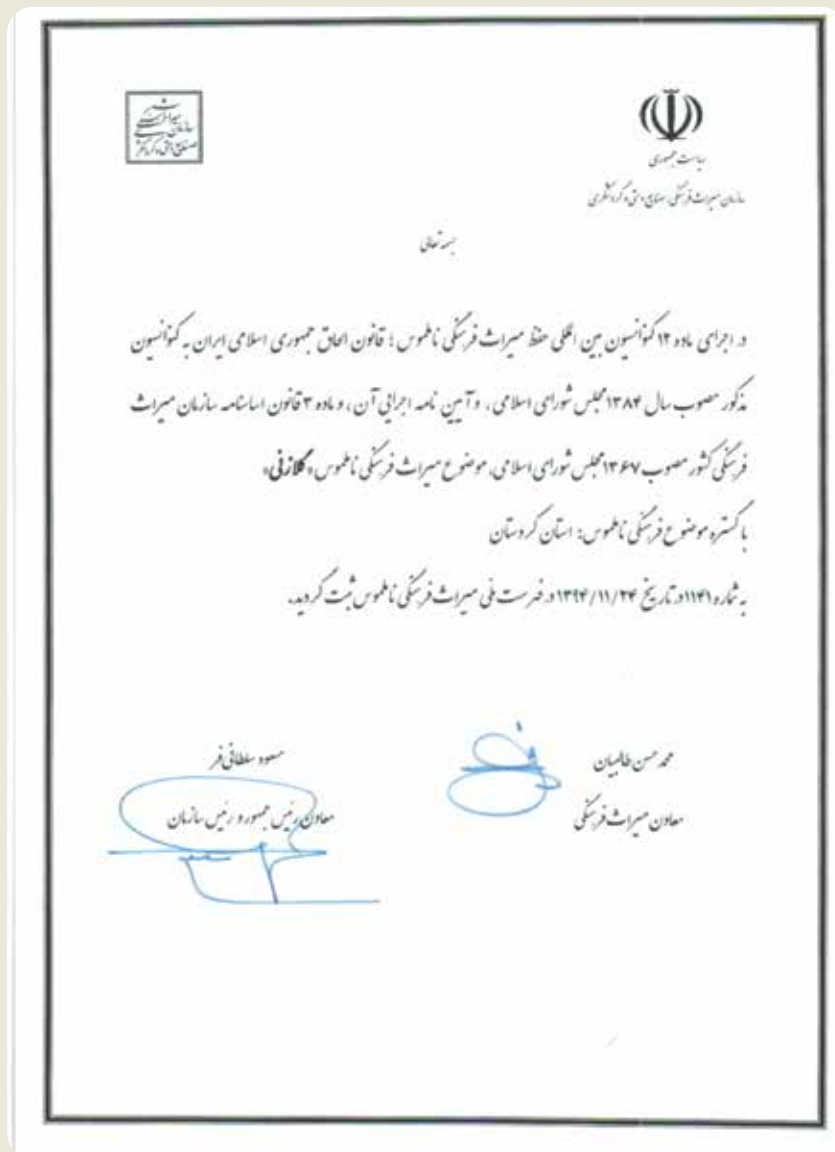 ریاست جمهوری
سازمان میراث فرهنگی، صنایع دستی و گردشگری
بسمه تعالی
در اجرای ماده ۱۲ کنوانسیون بین المللی حفظ میراث فرهنگی ناملموس؛ قانون الحاق جمهوری اسلامی ایران به کنوانسیون
مذکور مصوب سال ۱۳۸۴ مجلس شورای اسلامی، و آیین نامه اجرایی آن، و ماده ۳ قانون اساسنامه سازمان میراث
فرهنگی کشور مصوب ۱۳۶۷ مجلس شورای اسلامی، موضوع میراث فرهنگی ناملموس «کلازنی»
با گستره موضوع فرهنگی ناملموس: استان کردستان
به شماره ۱۱۴۱ در تاریخ ۱۳۹۴/۱۱/۲۴ در فهرست ملی میراث فرهنگی ناملموس ثبت گردید.
محمد حسن طالبیان
معاون میراث فرهنگی
مسعود سلطانی فر
معاون رئیس جمهور و رئیس سازمان